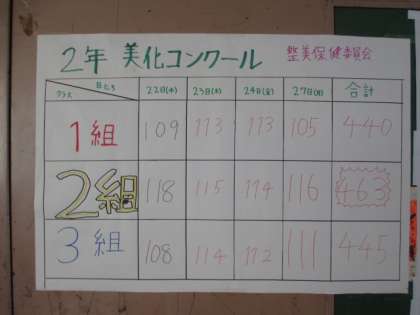 2年 美化コンクール 整美保健委員会
クラス 日にち 22日(水) 23日(木) 24日(金) 27日(月) 合計
1組 109 113 113 105 440
2組 118 115 114 116 463
3組 108 114 112 111 445